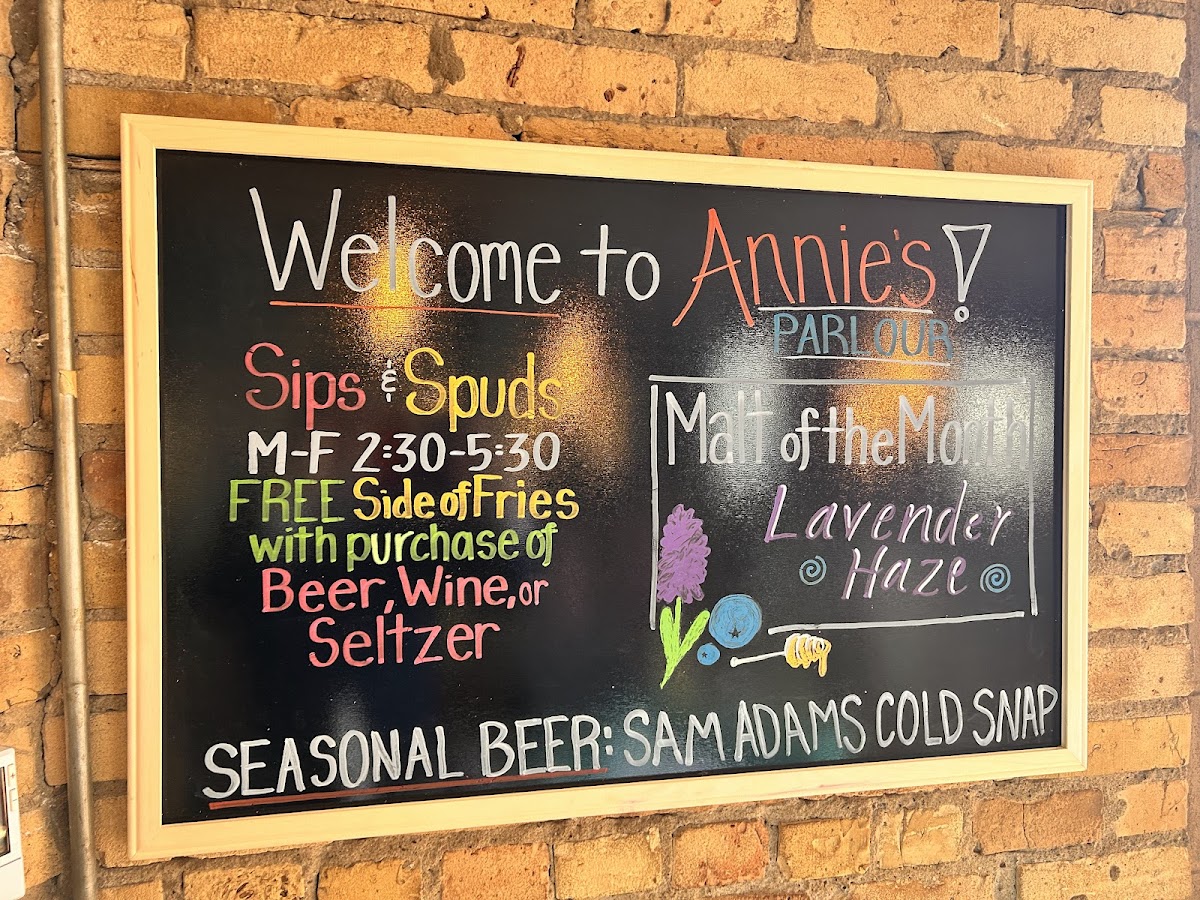 Welcome to Annie's!
PARLOUR
Sips & Spuds
M-F 2:30-5:30
FREE Side of Fries
with purchase of
Beer, Wine, or
Seltzer
Malt of the Month
Lavender
Haze
SEASONAL BEER: SAM ADAMS COLD SNAP